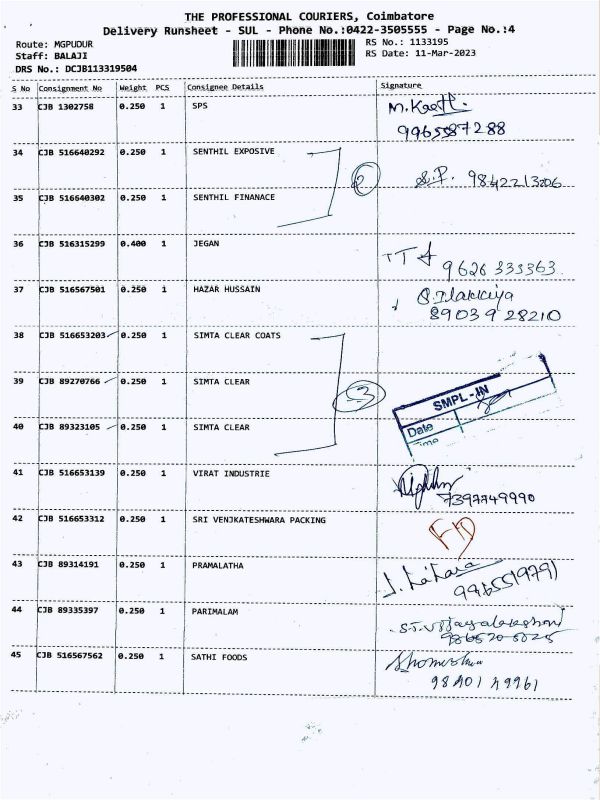 THE PROFESSIONAL COURIERS, Coimbatore
Delivery Runsheet - SUL - Phone No.:0422-3505555 - Page No.:4
Route: MGPUDUR
RS No.: 1133195
Staff: BALAJI
RS Date: 11-Mar-2023
DRS No.: DCJB113319504
S No Consignment No Weight PCS Consignee Details Signature
33 CJB 1302758 0.250 1 SPS
34 CJB 516640292 0.250 1 SENTHIL EXPOSIVE
2
S.P. 9842213206
35 CJB 516640302 0.250 1 SENTHIL FINANACE
36 CJB 516315299 0.400 1 JEGAN
9626 333363
37 CJB 516567501 0.250 1 HAZAR HUSSAIN
89039 28210
38 CJB 516653203 0.250 1 SIMTA CLEAR COATS
39 CJB 89270766 0.250 1 SIMTA CLEAR
3
SMPL-IN
Date
Time
40 CJB 89323105 0.250 1 SIMTA CLEAR
41 CJB 516653139 0.250 1 VIRAT INDUSTRIE
7397749990
42 CJB 516653312 0.250 1 SRI VENJKATESHWARA PACKING
43 CJB 89314191 0.250 1 PRAMALATHA
44 CJB 89335397 0.250 1 PARIMALAM
45 CJB 516567562 0.250 1 SATHI FOODS